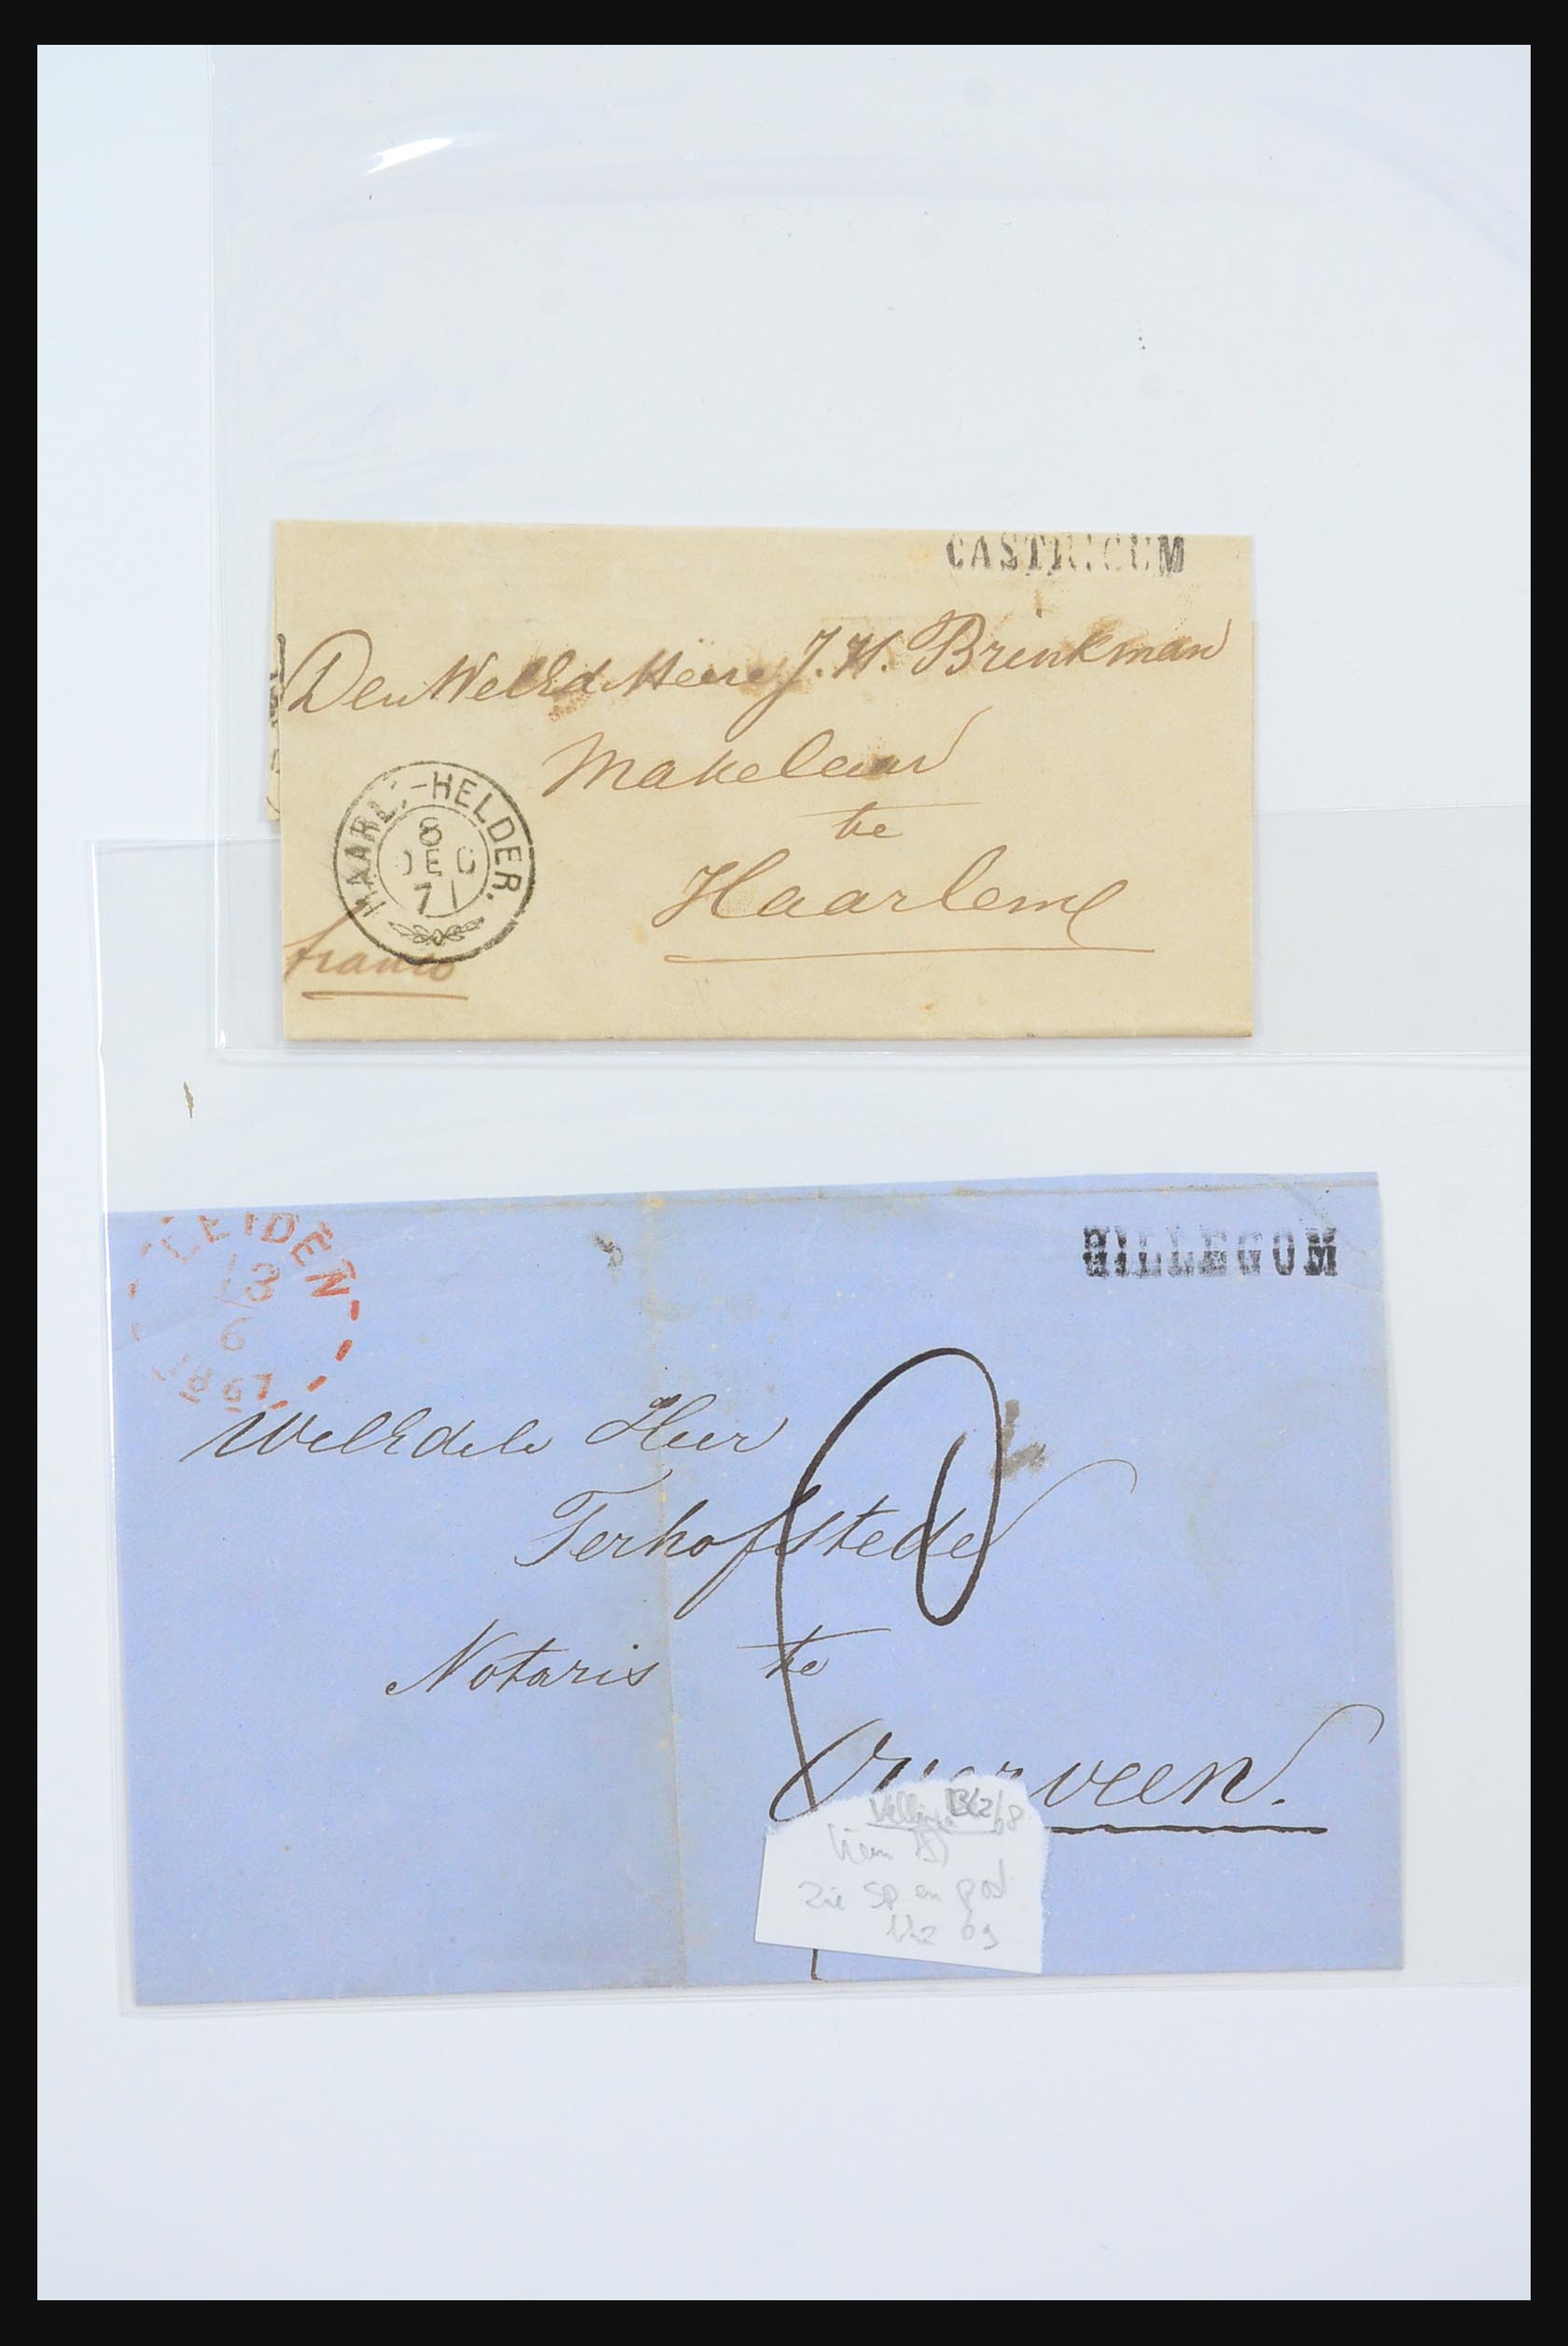 CASTRICUM
Den WelEd. Heere J. H. Brinkman
Makelaar
te
Haarlem
HAARL:-HELDER.
8
DEC
71
franco
LEIDEN
13
6
1867
HILLEGOM
WelEdele Heer
Terhofstede
Notaris te
Overveen.
zie SP en post
blz 69